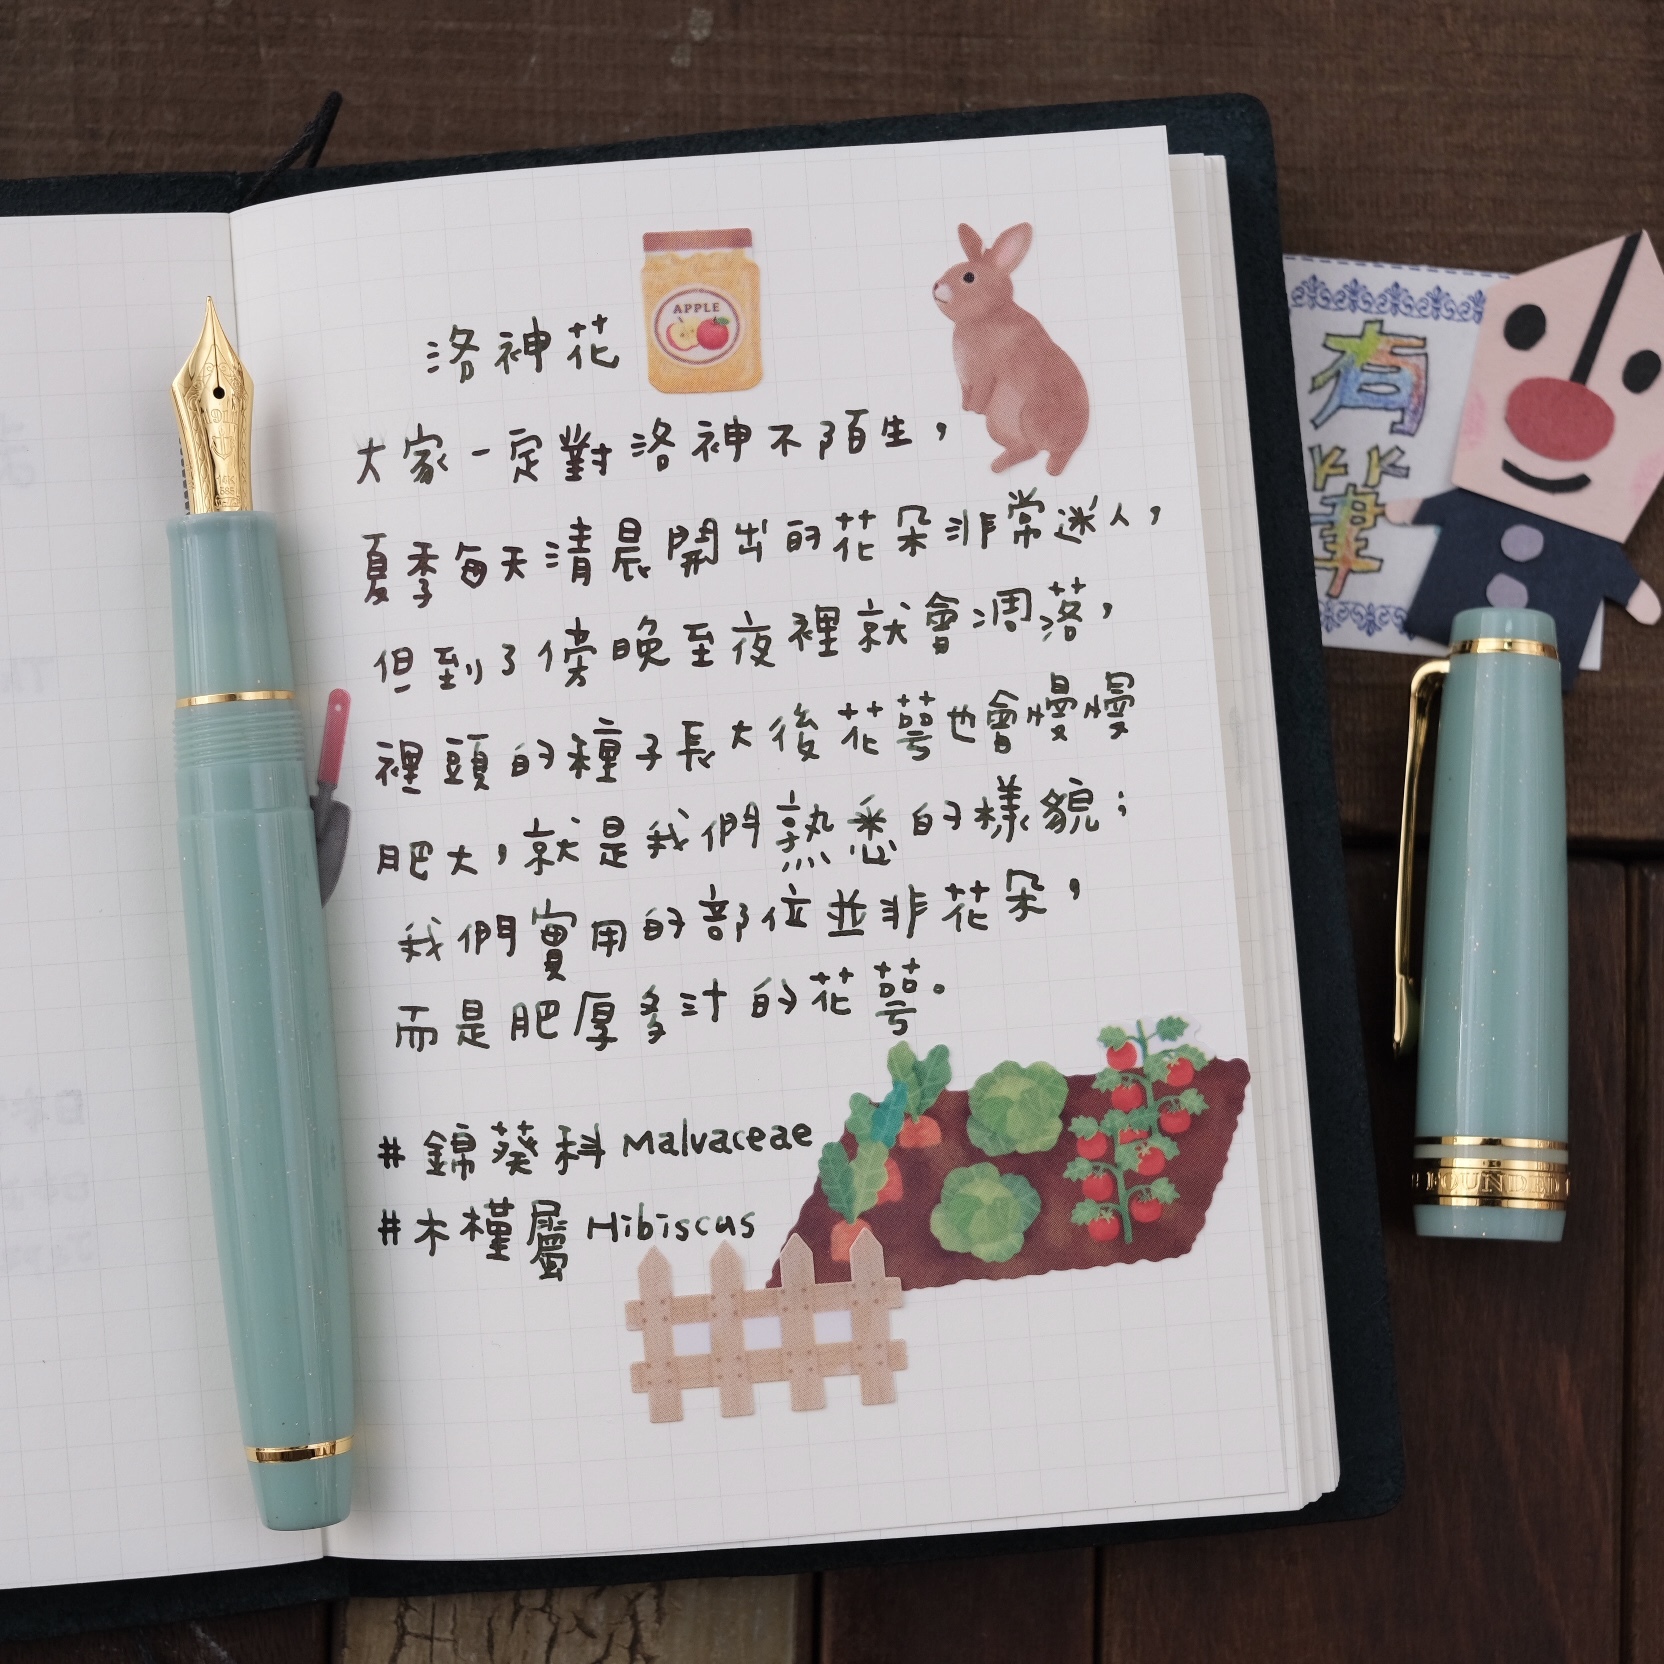 洛神花
APPLE
大家一定對洛神不陌生，
夏季每天清晨開出的花朵非常迷人，
但到了傍晚至夜裡就會凋落，
裡頭的種子長大後花萼也會慢慢
肥大，就是我們熟悉的樣貌；
我們實用的部位並非花朵，
而是肥厚多汁的花萼。
#錦葵科 Malvaceae
#木槿屬 Hibiscus
1911
14K
585
有筆
FOUNDED